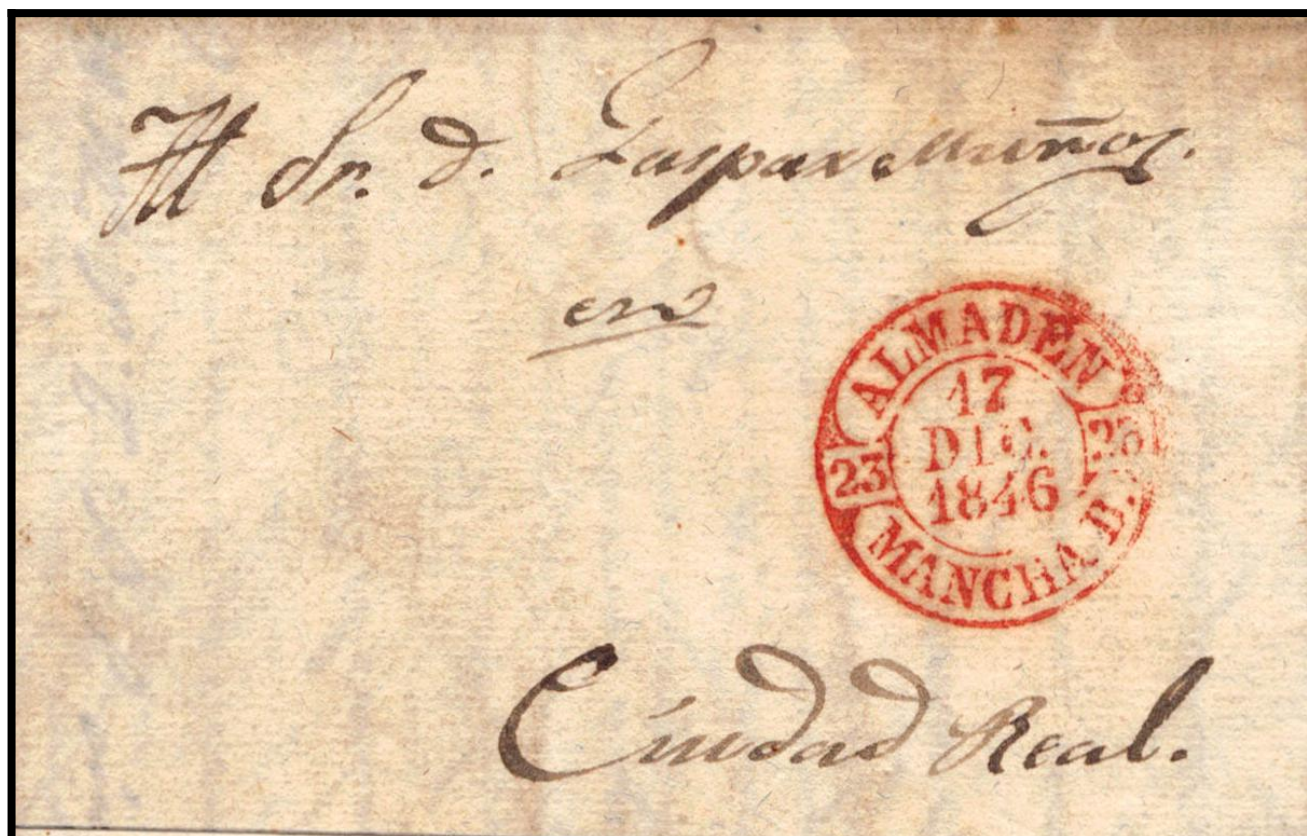 Al Sr. D. Gaspar Muñoz.
en
ALMADEN
17
DIC.
1846
23
23
MANCHA B.
Ciudad Real.